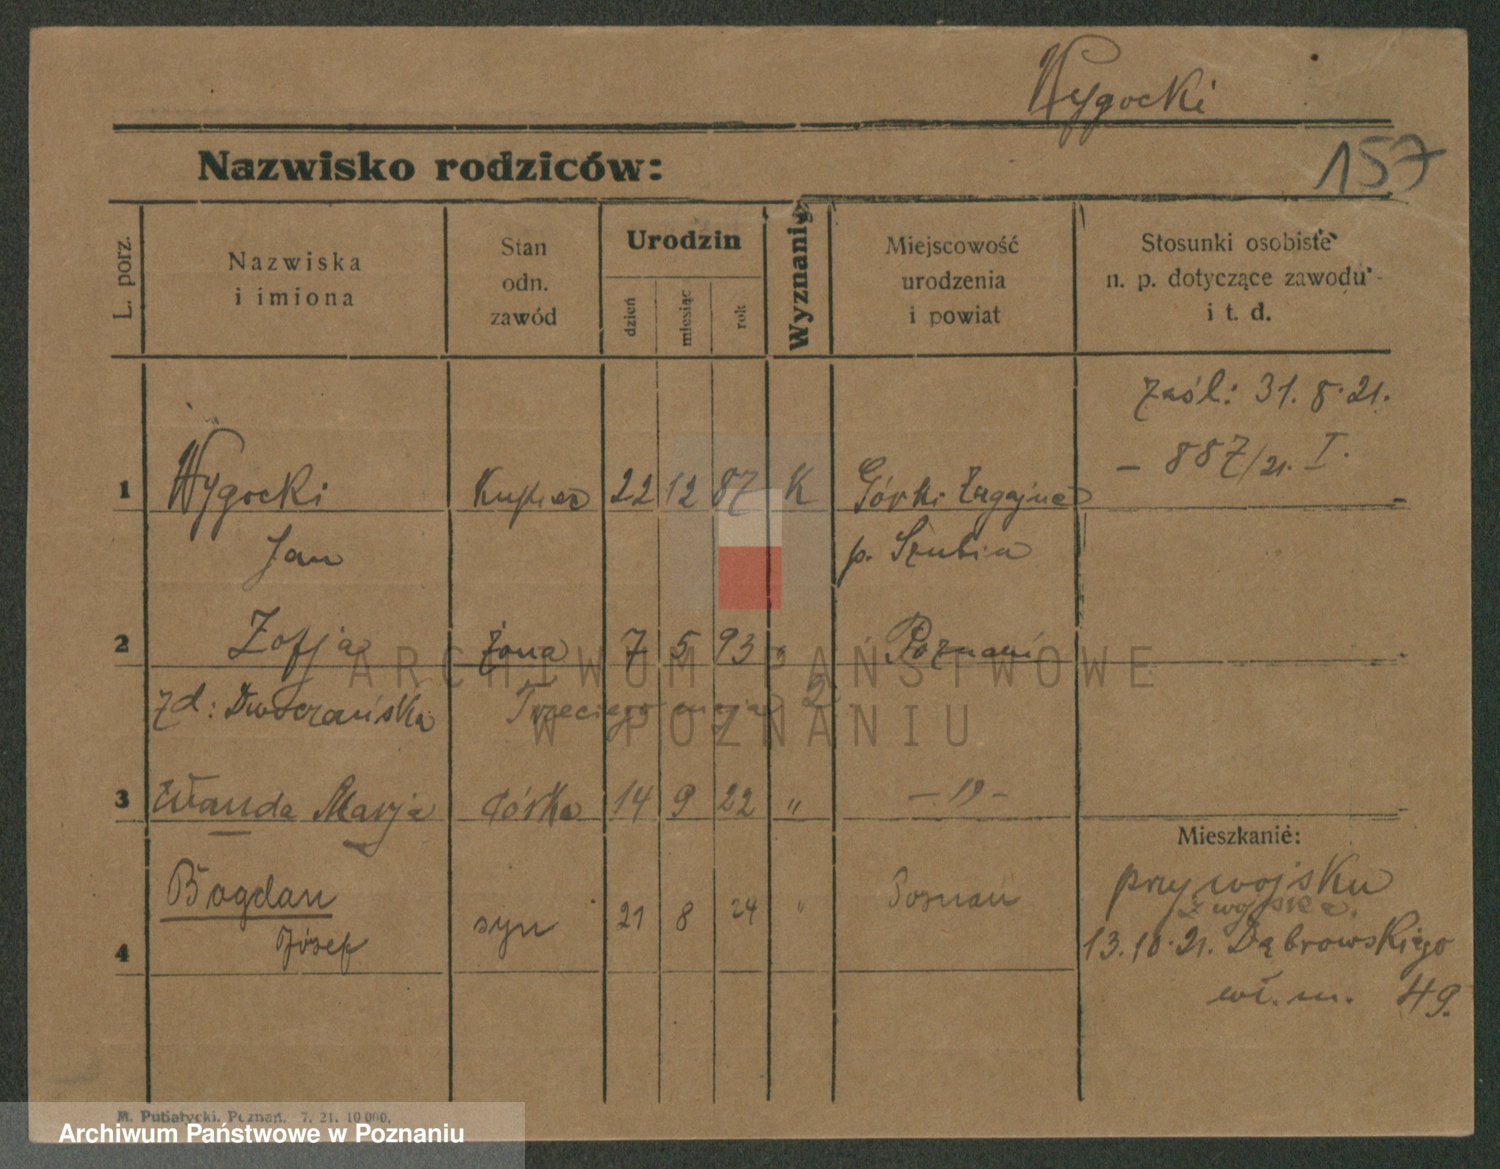 Wygocki
157
Nazwisko rodziców:
L. porz.
Nazwiska
i imiona
Stan
odn.
zawód
Urodzin
dzień
miesiąc
rok
Wyznanie
Miejscowość
urodzenia
i powiat
Stosunki osobiste
n. p. dotyczące zawodu
i t. d.
zaśl: 31. 8. 21.
– 887/21. I.
1 Wygocki Kupiec 22 12 87 K Górki Zagajne
Jan p. Szubin
2 Zofja żona 7 5 93 " Poznań
zd: Dworzańska Trzeciego maja 2
ARCHIWUM PAŃSTWOWE
W POZNANIU
3 Wanda Marja córka 14 9 22 " – 19 –
Mieszkanie:
Bogdan syn 21 8 24 " Poznań przy wojsku
z wojska.
4 Józef 13. 10. 21. Dąbrowskiego
wł. m. 49.
M. Putiatycki, Poznań, 7. 21. 10 000.
Archiwum Państwowe w Poznaniu